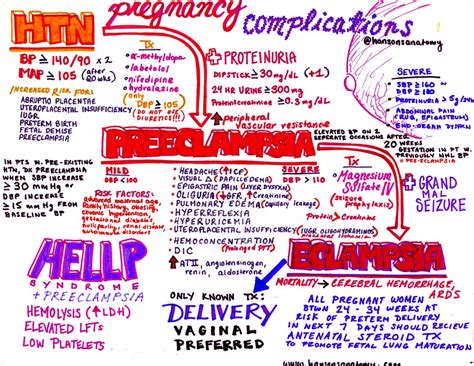 pregnancy
complications
@hanzonsanatomy
HTN
BP ≥ 140/90 x 2
MAP ≥ 105 (after 20 wks)
INCREASED RISK FOR:
ABRUPTIO PLACENTAE
UTEROPLACENTAL
INSUFFICIENCY
IUGR
PRETERM BIRTH
FETAL DEMISE
PREECLAMPSIA
Tx
• α-methyldopa
• labetolol
• nifedipine
• hydralazine
only
DBP ≥ 105
(NO DIURETICS!!!)
+ PROTEINURIA
DIPSTICK ≥ 30 mg/dL (+1)
24 HR URINE ≥ 300 mg
Protein:creatinine ≥ 0.3mg/dL
↑ peripheral
vascular resistance
SEVERE
SBP ≥ 160
DBP ≥ 110
Proteinuria > 5 g/day
ABDOMINAL PAIN
(RUQ, EPIGASTRIUM)
END-ORGAN DYSFXN
ELEVATED BP ON 2
SEPARATE OCCASIONS AFTER
20 WEEKS
GESTATION IN PT W.
PREVIOUSLY NHL BP
= PRE-ECLAMPSIA
PREECLAMPSIA
IN PTS W. PRE-EXISTING
HTN, DX PREECLAMPSIA
WHEN SBP INCREASE
≥ 30 mm Hg or
DBP INCREASE
≥ 15 mm Hg FROM
BASELINE BP
MILD
DBP ≤ 100
RISK FACTORS:
advanced maternal age,
family history, obesity,
chronic hypertension,
gestational diabetes
null parity, renal disease
• HEADACHE (↑ICP)
• VISUAL Δ (PAPILLEDEMA)
• EPIGASTRIC PAIN (LIVER DYSFXN)
• OLIGURIA
• PULMONARY EDEMA (Capillary leakage)
• HYPERREFLEXIA
• HYPERURICEMIA
• UTEROPLACENTAL INSUFFICIENCY (IUGR, OLIGOHYDRAMNIOS)
• HEMOCONCENTRATION
• DIC (Prolonged PTT)
• ↑ATII, angiotensinogen,
renin, aldosterone
SEVERE
DBP > 110
Tx
• Magnesium
Sulfate IV
(seizure
prophylaxis)
Protein:Creatinine
+ GRAND
MAL
SEIZURE
HELLP
SYNDROME
+ PREECLAMPSIA
HEMOLYSIS (↑LDH)
ELEVATED LFTs
LOW PLATELETS
ONLY KNOWN TX:
DELIVERY
VAGINAL
PREFERRED
ECLAMPSIA
MORTALITY → CEREBRAL HEMORRHAGE,
ARDS
ALL PREGNANT WOMEN
BTWN 24 - 34 WEEKS AT
RISK OF PRETERM DELIVERY
IN NEXT 7 DAYS SHOULD RECIEVE
ANTENATAL STEROID TX
TO PROMOTE FETAL LUNG MATURATION
www.hanzonsanatomy.com